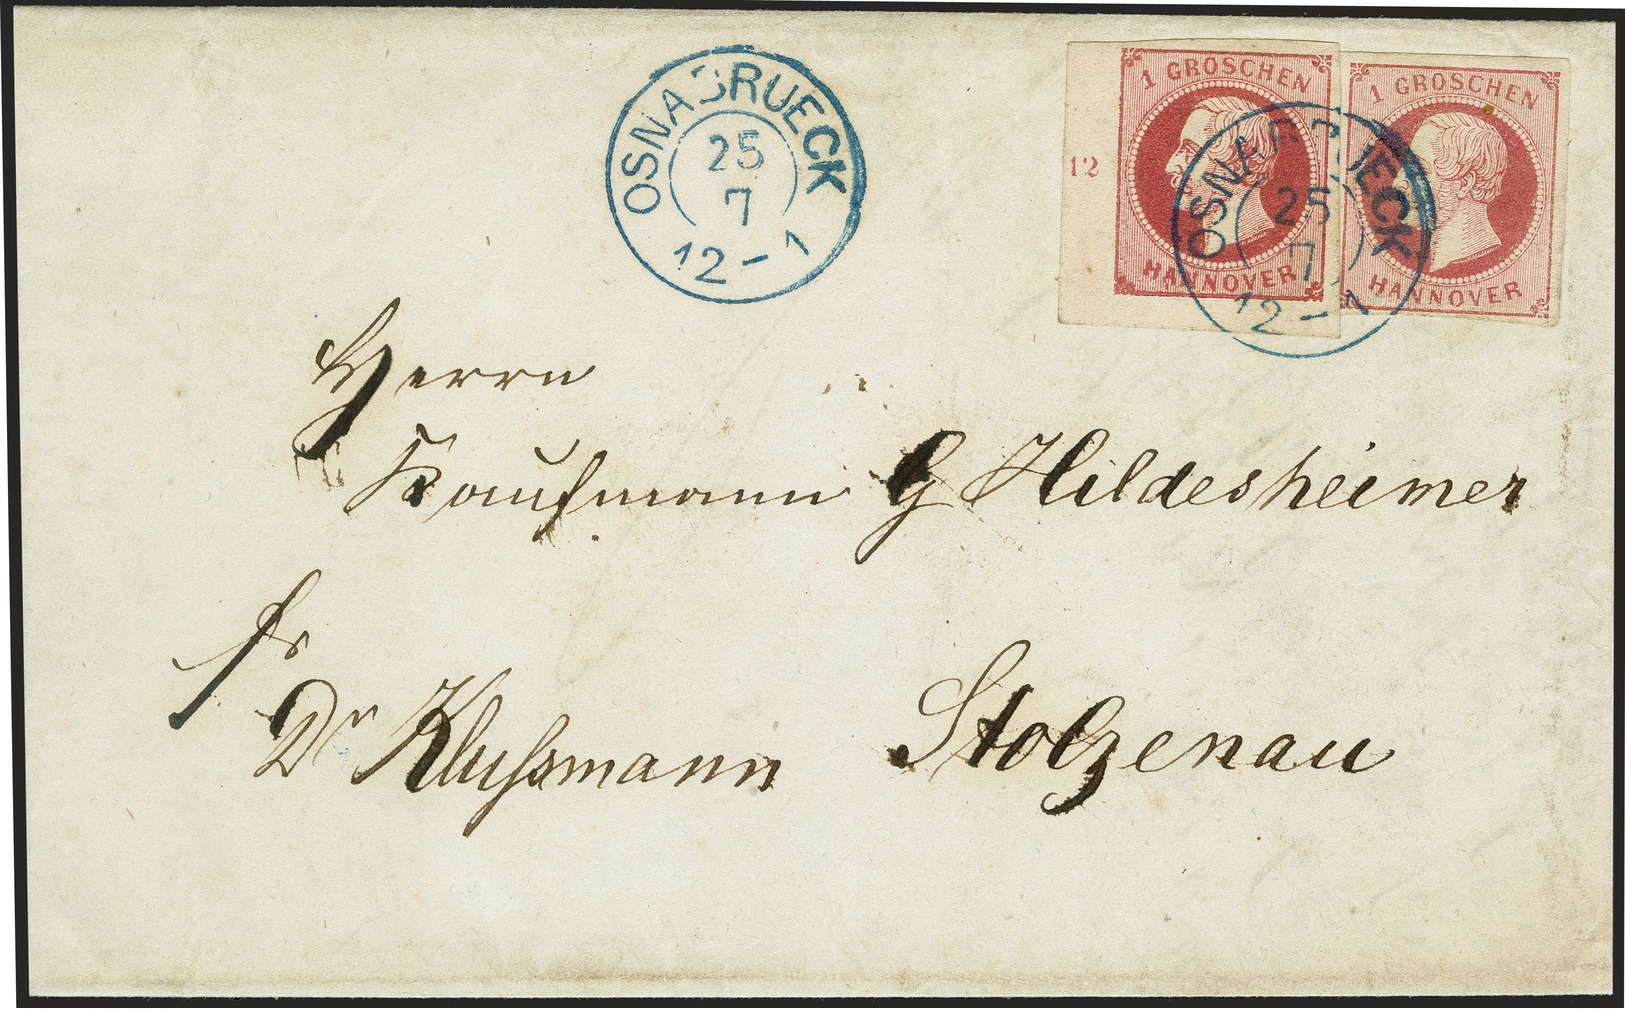 OSNABRUECK
25
7
12-1
1 GROSCHEN
HANNOVER
12
1 GROSCHEN
HANNOVER
OSNABRUECK
25
7
12-1
Herrn
Kaufmann G Hildesheimer
fr
Dr Klußmann
Stolzenau